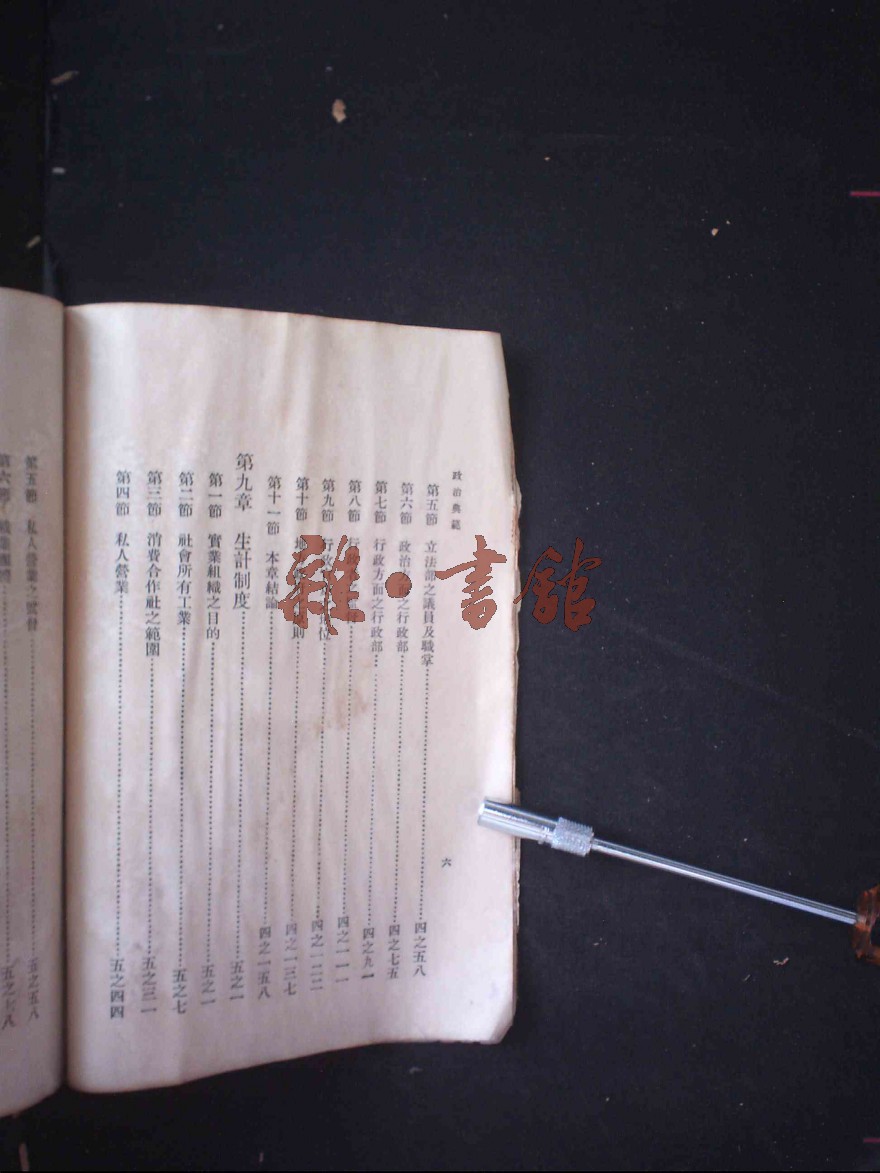 政治典範
六
第五節 立法部之議員及職掌 四之五八
第六節 政治 之行政部 四之七五
第七節 行政方面之行政部 四之九一
第八節 行 四之一一一
第九節 行政 位 四之一二二
第十節 地 則 四之一三七
第十一節 本章結論 四之一五八
第九章 生計制度 五之一
第一節 實業組織之目的 五之一
第二節 社會所有工業 五之七
第三節 消費合作社之範圍 五之三一
第四節 私人營業 五之四四
第五節 私人營業之監督 五之五八
第六節 職業團體 五之七八
雜·書館